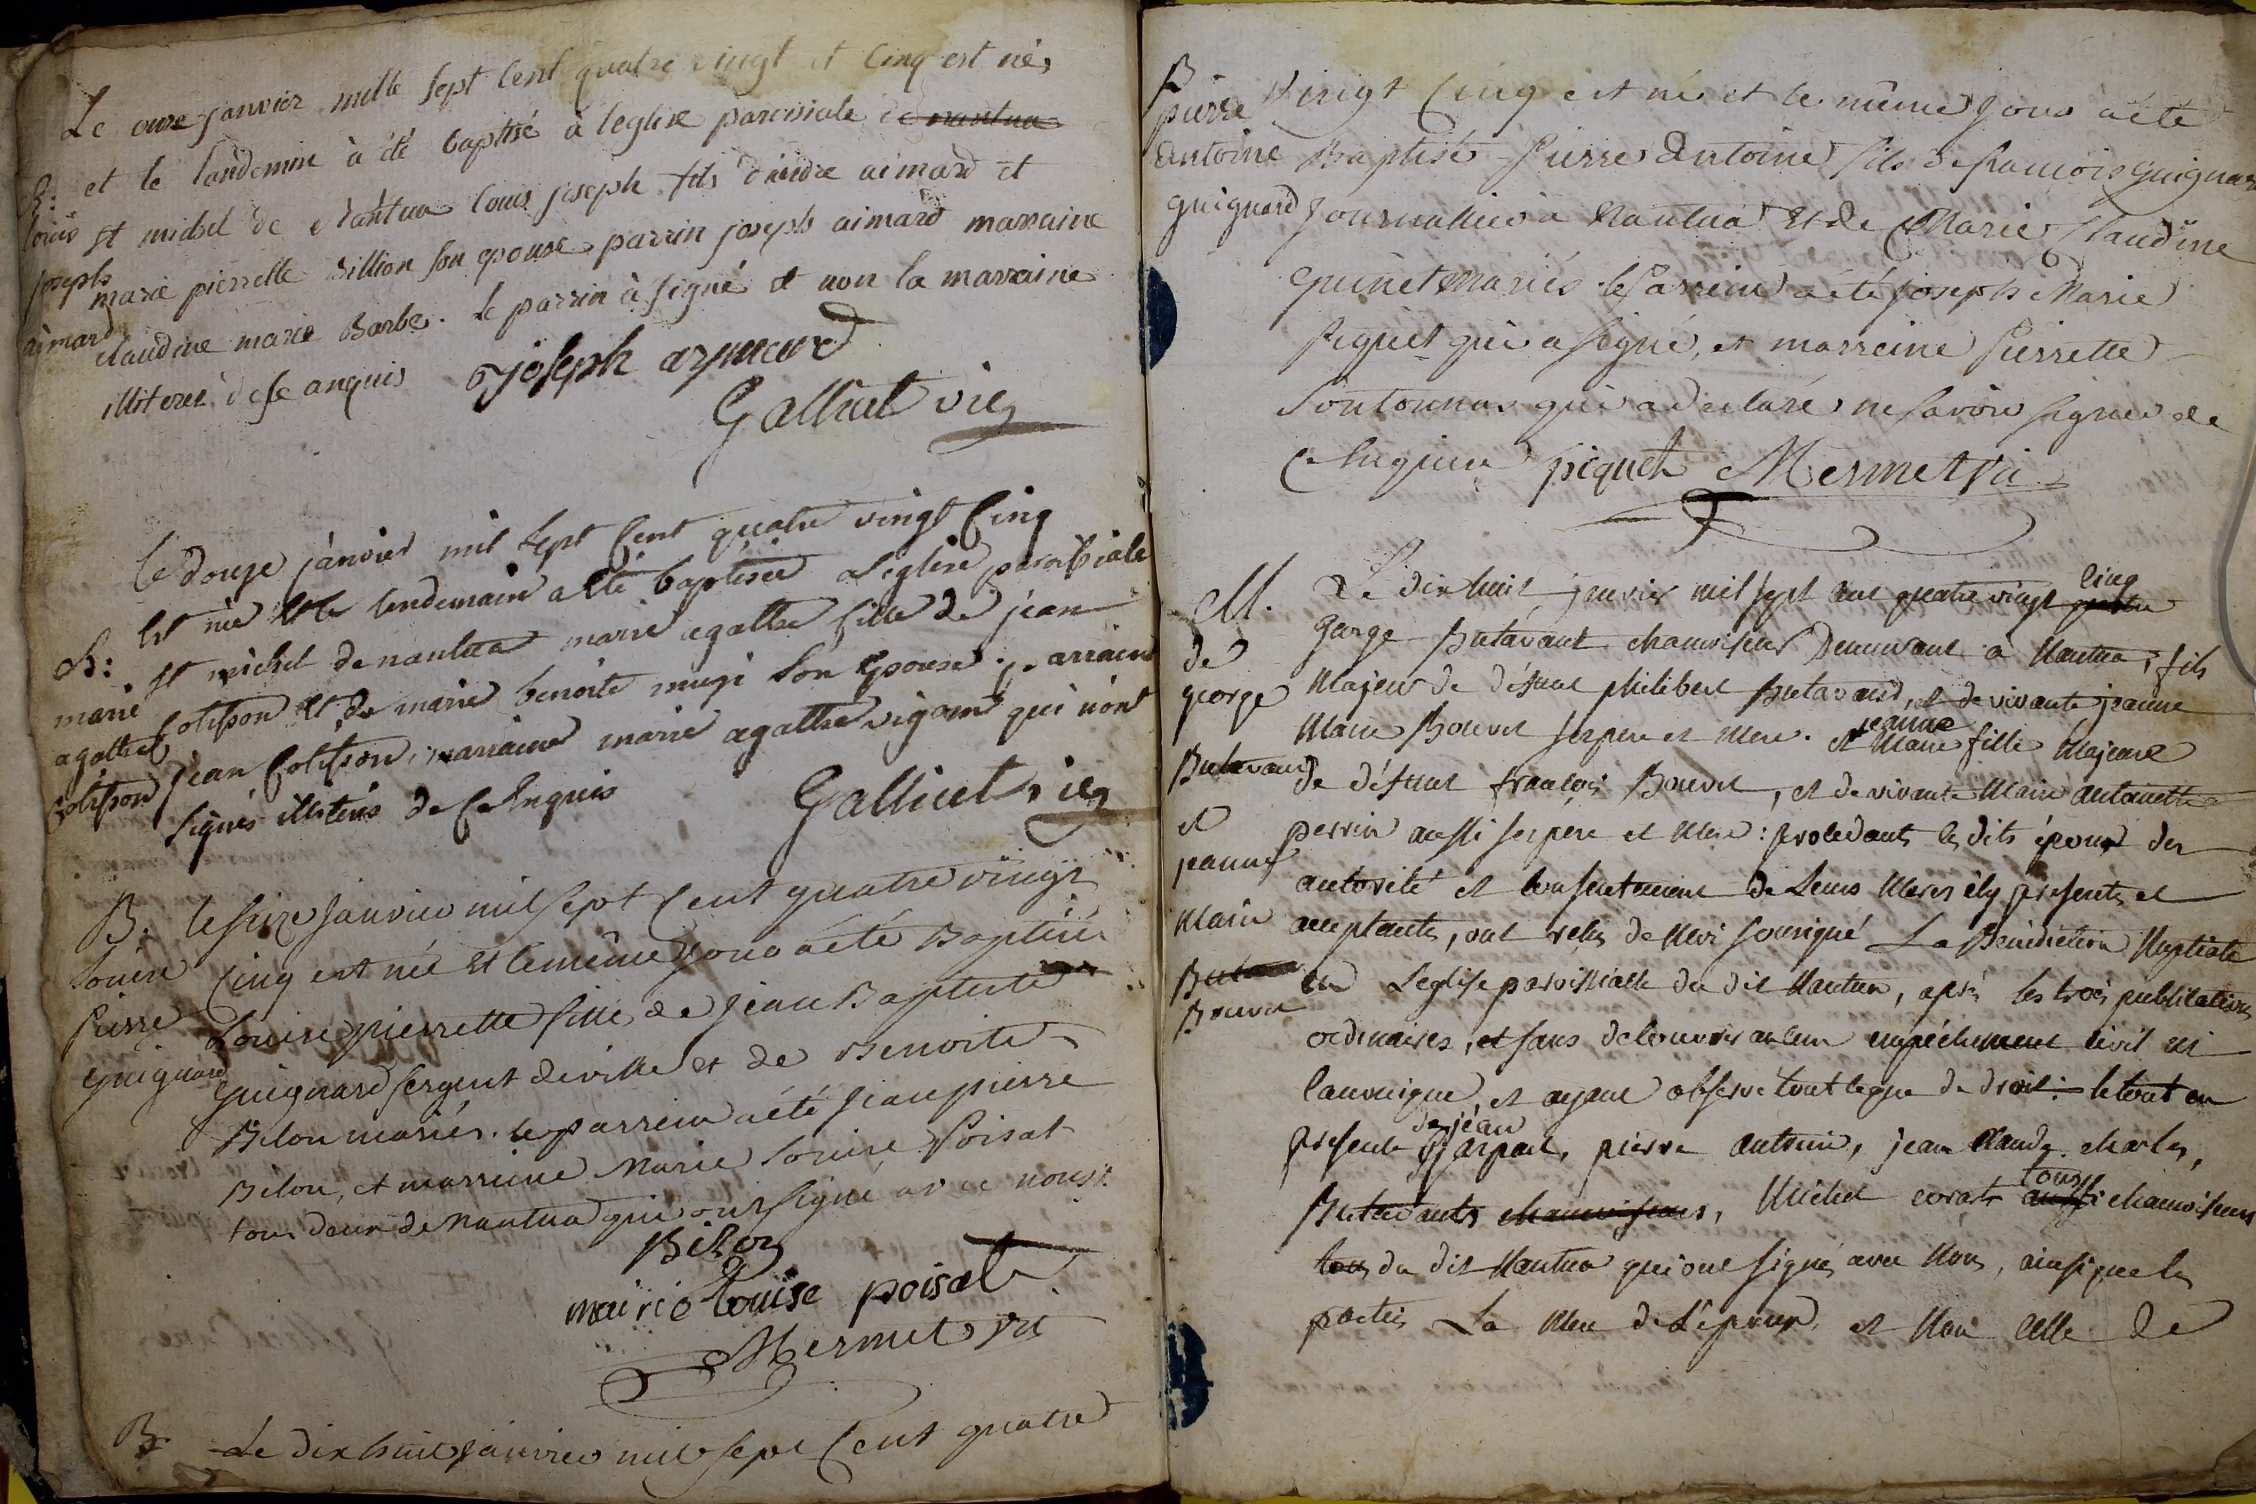 Le onze janvier mille sept cent quatre vingt et cinq est né,
B: et le landemin à été baptisé à leglise paroissiale de nantua
louis St michel de Nantua louis joseph fils d'andre aimard et
joseph marie pierrette Billion son epouse. parrin joseph aimard marraine
aimard claudine marie Barbe. le parrin à signé et non la marraine
illiteree de ce anquis joseph aymard
Galliat vic
Le douze janvier mil sept cent quatre vingt cinq
B: Est née Et le lendemain a eté baptisée a L'eglise paroissiale
marie St michel de nantua marie agathe fille de jean
agathe Colisson Et de marie benoite mugi Son Epouse. parrain
Colisson jean Colisson, marraine marie agathe qui n'ont
Signés illiterés de Ce Enquis Galliat vic
B. le seize janvier mil sept Cent quatre vingt
Louise Cinq est née et le même jour a été Baptisée
Pierre Louise pierrette fille de Jean Baptiste
guignard guignard sergent de ville et de Benoite
Belon mariés. le parrein a été jean pierre
Belon, et marreine Marie Louise Poisat
tous deux de Nantua qui ont signé avec nous.
Belon
marie Louise poisat
Mermet vi
B. Le dix huit janvier mil sept Cent quatre
B Vingt Cinq est né et le même jour a été
pierre
antoine Baptisé Pierre Antoine fils de francois guignard
guignard journallier a Nantua Et de Marie Claudine
guinet mariés. le Parrein a été joseph Marie
Piquet qui a signé, et marreine Pierrette
qui a declaré ne savoir signer de
Ce Enquise piquet Mermet vi
M. Le dix huit janvier mil sept cent quatre vingt cinq quatre
de George Butavant chamoiseur Demeurant a Nantua, fils
george Majeur de défunt philibert Butavand, et de vivante jeanne
Marie Bouvet ses pere et Mere. et jeanne Marie fille Majeure
Butavand de défunt françois Bouvet, et de vivante Marie antoinette
et perrin aussi ses pere et Mere: procedants les dits époux des
jeanne autorité et consentement de Leurs Meres icy presentes et
Marie acceptantes, ont reçus de Moi soussigné La Benediction Nuptiale
Butavan en L'eglise paroissialle du dit Nantua, après les trois publications
Bouvet ordinaires, et sans decouvrir aucun empéchement civil ni
canonique, et ayant observé tout le que de droit: le tout en
presence de jean pierre antoine, jean claude, charles,
Butavants chamoiseurs, Michel tous aussi chamoiseurs
tous du dit Nantua qui ont signés avec Nous, ainsi que les
parties La Mere de L'epoux, et Non celle de